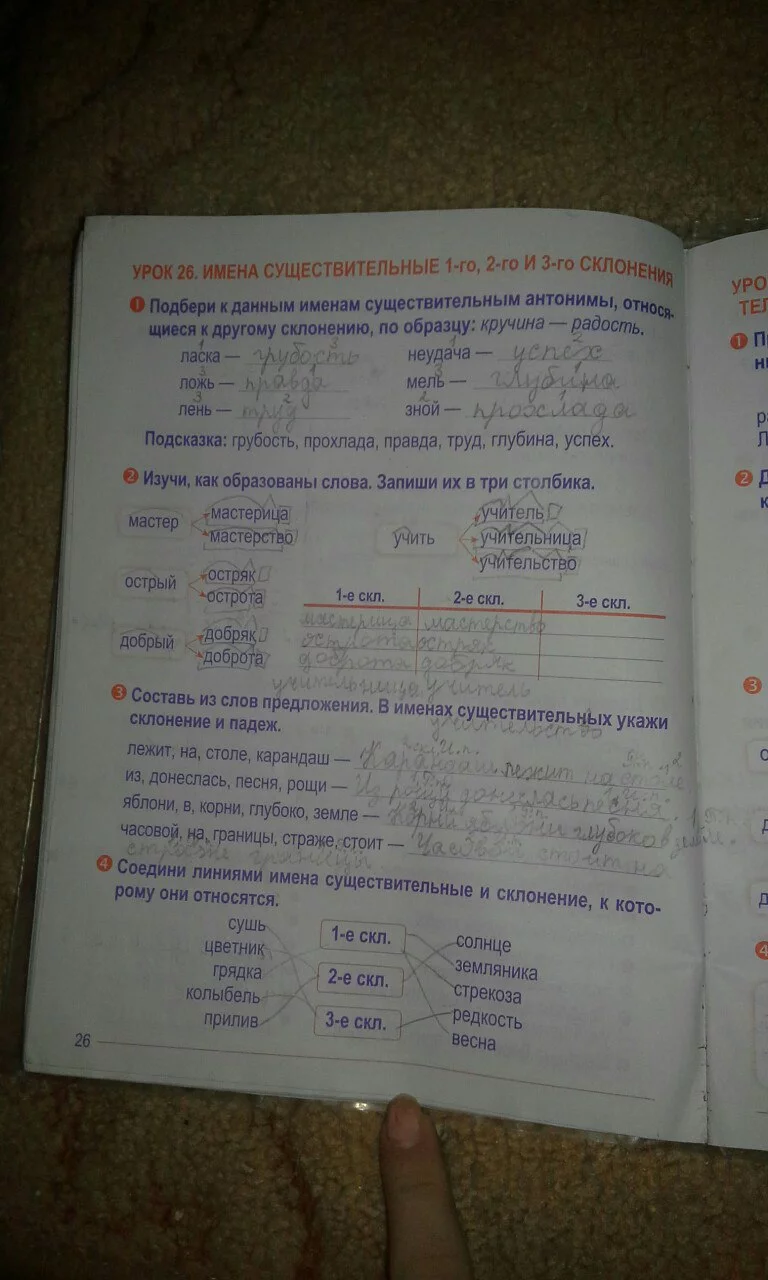 УРОК 26. ИМЕНА СУЩЕСТВИТЕЛЬНЫЕ 1-го, 2-го И 3-го СКЛОНЕНИЯ
1 Подбери к данным именам существительным антонимы, относя-
щиеся к другому склонению, по образцу: кручина — радость.
ласка — грубость неудача — успех
ложь — правда мель — глубина
лень — труд зной — прохлада
Подсказка: грубость, прохлада, правда, труд, глубина, успех.
2 Изучи, как образованы слова. Запиши их в три столбика.
мастер мастерица мастерство
учить учитель учительница учительство
острый остряк острота
добрый добряк доброта
1-е скл. 2-е скл. 3-е скл.
мастерица мастерство
острота остряк
доброта добряк
учительница учитель
учительство
3 Составь из слов предложения. В именах существительных укажи
склонение и падеж.
лежит, на, столе, карандаш — Карандаш лежит на столе
из, донеслась, песня, рощи — Из рощи донеслась песня.
яблони, в, корни, глубоко, земле — Корни яблони глубоко в земле.
часовой, на, границы, страже, стоит — Часовой стоит на
страже границы.
4 Соедини линиями имена существительные и склонение, к кото-
рому они относятся.
сушь
цветник
грядка
колыбель
прилив
1-е скл.
2-е скл.
3-е скл.
солнце
земляника
стрекоза
редкость
весна
26
УРО
ТЕЛ
1 П
н
р
Л
2 Д
к
3
4